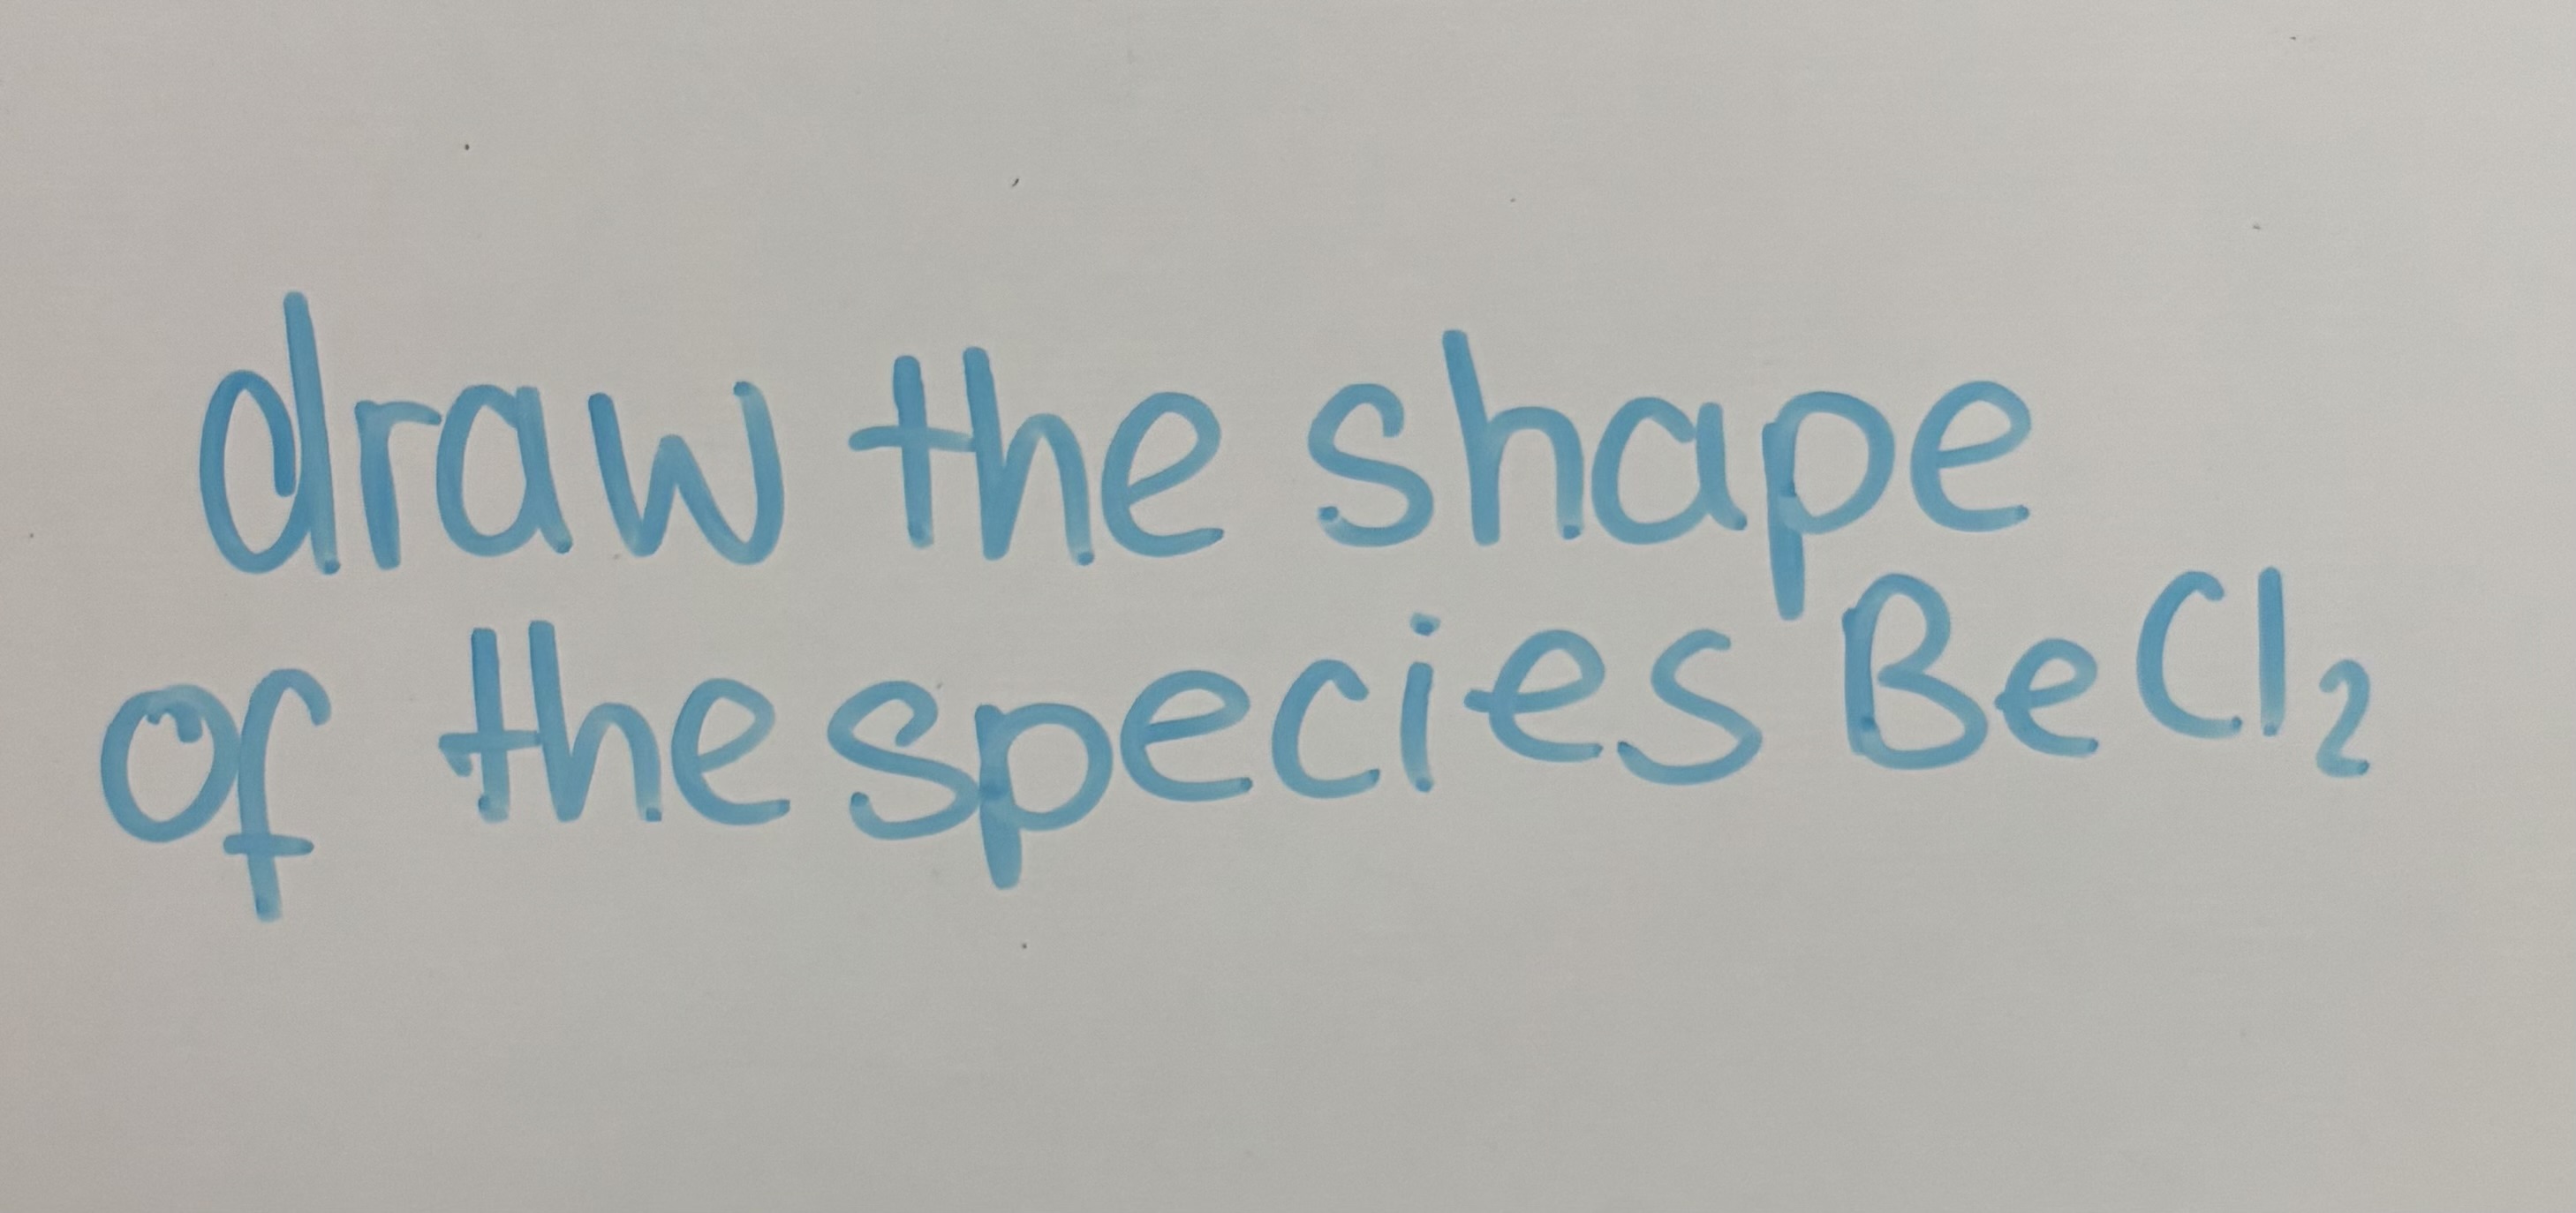 draw the shape
of the species BeCl₂